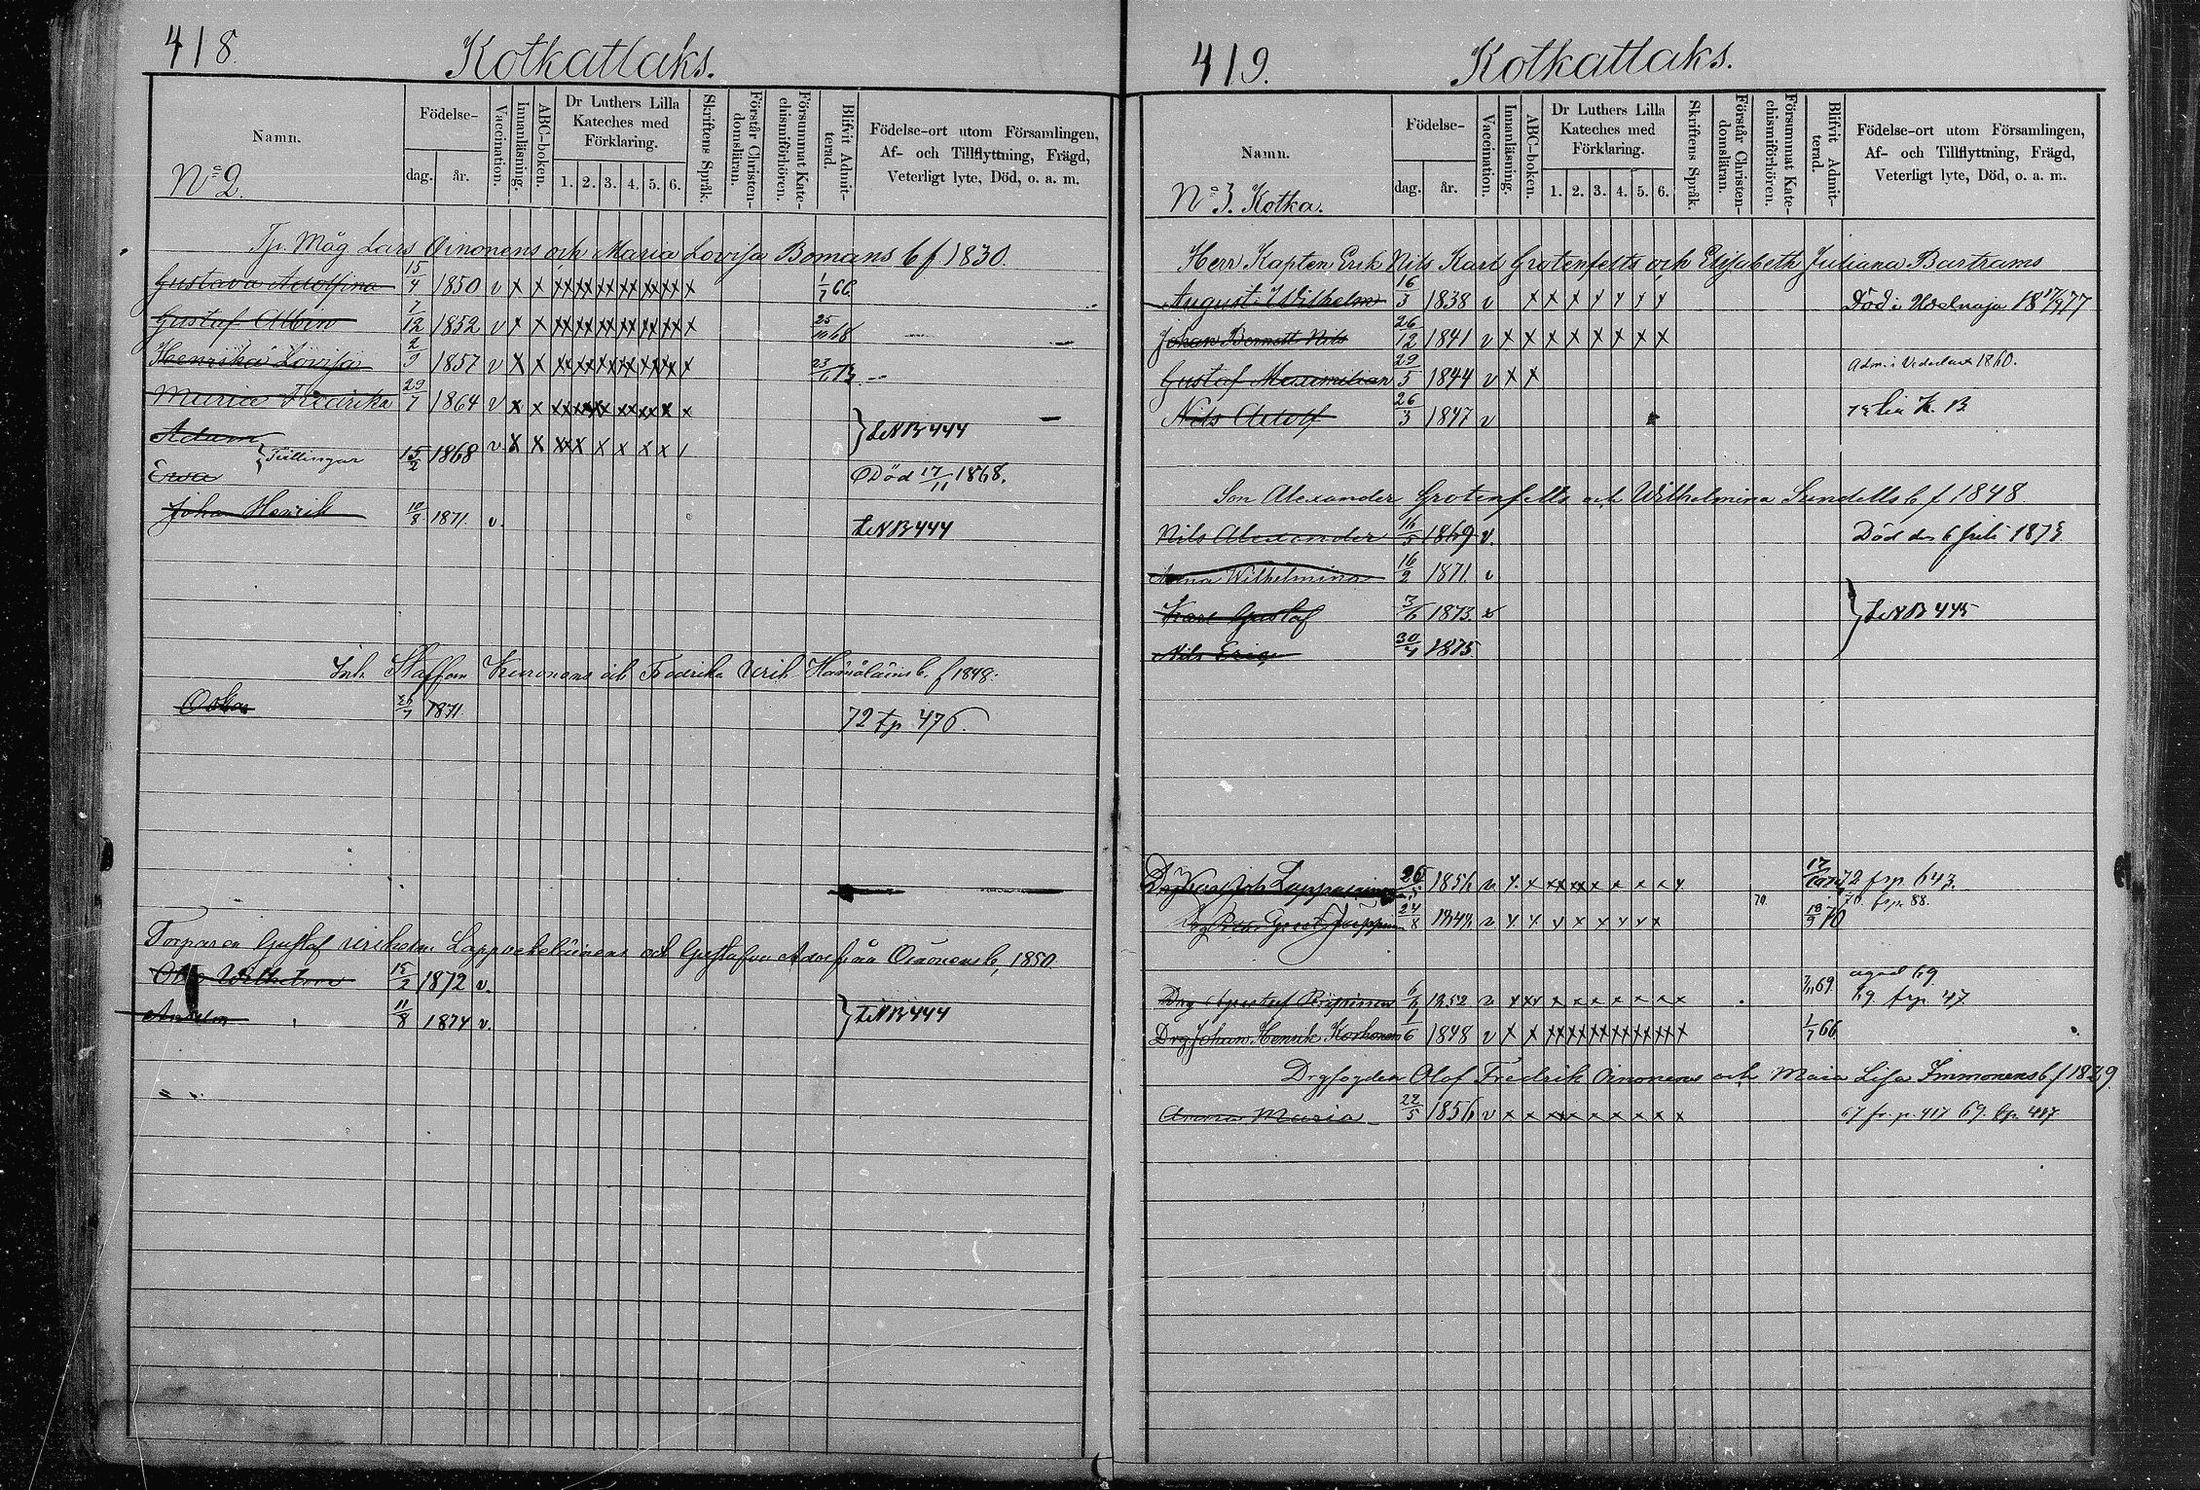 418.
Kotkatlaks.
Namn.
Födelse-
dag.
år.
Vaccination.
Innanläsning.
ABC-boken.
Dr Luthers Lilla
Kateches med
Förklaring.
1. 2. 3. 4. 5. 6.
Skriftens Språk.
Förstår Christen-
domsläran.
Försummat Kate-
chismiförhören.
Blifvit Admit-
terad.
Födelse-ort utom Församlingen,
Af- och Tillflyttning, Frägd,
Veterligt lyte, Död, o. a. m.
No 2.
Tp. Måg Lars Oinonens och Maria Lovisa Bomans b f 1830.
Gustava Adolfina 15/4 1850 v x x xx xx xx xx xx x 1/7 66
Gustaf Albin 7/12 1852 v x x xx xx xx xx xx x 25/10 68
Henrika Lovisa 2/9 1857 v x x xx xx xx xx xx x 23/6 73
Maria Fredrika 29/7 1864 v x x
Adam
Tvillingar 15/2 1868 v x x
LNB 444
Ewa
Död 17/11 1868.
Johan Henrik 10/8 1871. v.
LNB 444
Inh. Staffan Kuronens och Fredrika Hämäläins b. f 1848.
Oskar 1871.
72 tp 476.
Torparen Gustaf Lappveteläinens och Gustafva Adolfina Oinonens b, 1850.
Otto Wilhelm 15/2 1872 v.
11/8 1874 v.
LNB 444
419.
Kotkatlaks.
Namn.
Födelse-
dag.
år.
Vaccination.
Innanläsning.
ABC-boken.
Dr Luthers Lilla
Kateches med
Förklaring.
1. 2. 3. 4. 5. 6.
Skriftens Språk.
Förstår Christen-
domsläran.
Försummat Kate-
chismiförhören.
Blifvit Admit-
terad.
Födelse-ort utom Församlingen,
Af- och Tillflyttning, Frägd,
Veterligt lyte, Död, o. a. m.
No 3. Kotka.
Herr Kapten Erik Nils Karl Grotenfelts och Elisabeth Juliana Bartrams
August Wilhelm 16/3 1838 v x x x x x x x Död i
Johan Bernett Nils 26/12 1841 v x x x x x x x x
Gustaf Maximilian 29/5 1844 v x x Adm. i 1860.
Nils Adolf 26/3 1847 v
Son Alexander Grotenfelts och Wilhelmina Sundells b f 1848.
Nils Alexander 16/5 1869 v. Död den 6 Juli 1873
Anna Wilhelmina 16/2 1871. v
Karl Gustaf 3/6 1873. v
LNB 445
Nils Eric 30/4 1875.
Lappalainen 1856 v x x 72 frp 643.
Drg 24/8 v x x x x x x x x 70. frp. 88.
Drg Gustaf 1852 v 69. 69 frp 47
Drg Johan Henrik Korhonen 1/6 1848 v x x xx xx xx xx xx xx x 1/7 66.
Drgfogden Olof Fredrik Oinonens och Maia Lisa Immonens b f 1829
Anna Maria 22/5 1856 v x x xx x x x x x x 67 fr. p. 417 69. frp 417